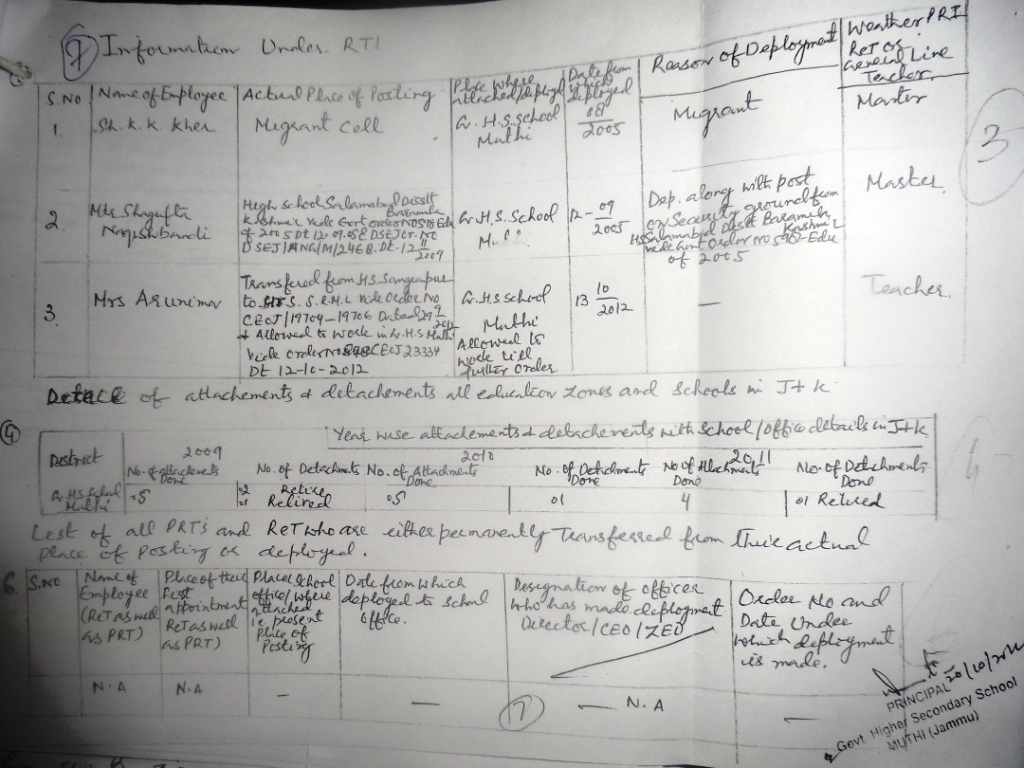 7 Information Under RTI
S.No
Name of Employee
Actual Place of Posting
Place where
attached/deployd
Date from
which
deployed
Reason of Deployment
Weather PRI
ReT or
General Line
Teacher
1.
Sh. K. K. Kher
Migrant Cell
G. H. S. School
Muthi
08
2005
Migrant
Master
3
2.
Mrs. Shagufta
Naqishbandi
High School Salamabad Disstt
Baramula
Kashmir vide Govt order No 595 Edu
of 2005 Dt 12.09.05 & DSEJ Or. No
DSEJ/ANG/M/246 B. Dt-12 11
2009
G. H. S. School
12- 09
2005
Dep. along with post
on Security ground from
HS Salamabad Disstt Baramula
Kashmir
vide Govt Order No 595-Edu
of 2005
Master
3.
Mrs Arunima
Transfered from HS. Sangrapur
to S. S. R.M.L vide Order No
CEOJ/19704-19706 Dated 29 9
2012
& Allowed to work in G.H.S Muthi
vide order No CEOJ 23334
DT 12-10-2012
G. H S School
Muthi
Allowed to
work till
further Order
13 10
2012
—
Teacher
of attachements & detachements all education zones and schools in J+K
4
Year wise attachements & detachements with School/office details in J+K
District
2009
2010
2011
No. of attachments
Done
No. of Detachmts
No. of Attachments
Done
No. of Detachments
Done
No of Attachments
Done
No. of Detachments
Done
G. H.S. School
Muthi
05
02 Retire
01 Retired
05
01
4
01 Retired
List of all PRTs and ReT who are either permanently Transferred from their actual
place of Posting or deployed.
6.
S.No
Name of
Employee
(ReT as well
as PRT)
Place of their
first
appointment
ReT as well
as PRT)
Place/School
office/where
attached
i.e present
Place of
Posting
Date from which
deployed to school
office.
Designation of officer
who has made deployment
Director/CEO/ZEO
Order No and
Date Under
which deployment
is made.
N. A
N. A
—
—
— N. A
—
7
20/10/201
PRINCIPAL
Govt Higher Secondary School
MUTHI (Jammu)